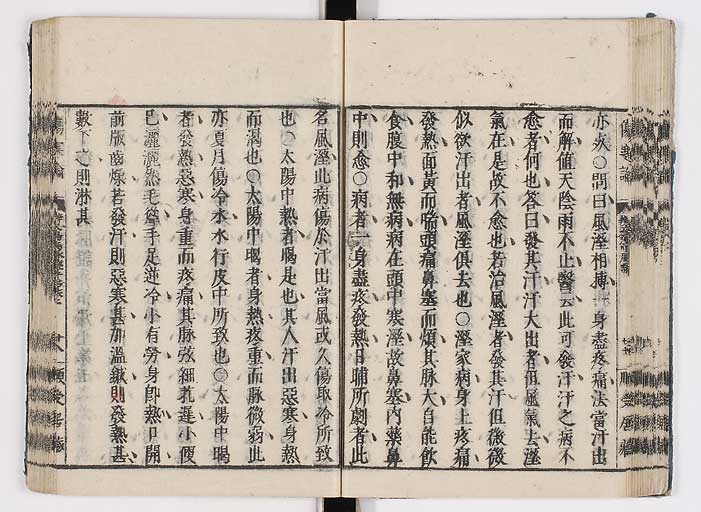 亦疾○問曰風溼相搏一身盡疼痛法當汗出
而解値天陰雨不止醫云此可發汗汗之病不
愈者何也答曰發其汗汗大出者但風氣去溼
氣在是故不愈也若治風溼者發其汗但微微
似欲汗出者風溼俱去也○溼家病身上疼痛
發熱面黃而喘頭痛鼻塞而煩其脉大自能飲
食腹中和無病病在頭中寒溼故鼻塞內藥鼻
中則愈○病者一身盡疼發熱日晡所劇者此
名風溼此病傷於汗出當風或久傷取冷所致
也○太陽中熱者暍是也其人汗出惡寒身熱
而渴也○太陽中暍者身熱疼重而脉微弱此
亦夏月傷冷水水行皮中所致也○太陽中暍
者發熱惡寒身重而疼痛其脉弦細芤遲小便
已灑灑然毛聳手足逆冷小有勞身即熱口開
前版齒燥若發汗則惡寒甚加溫鍼則發熱甚
數下之則淋甚